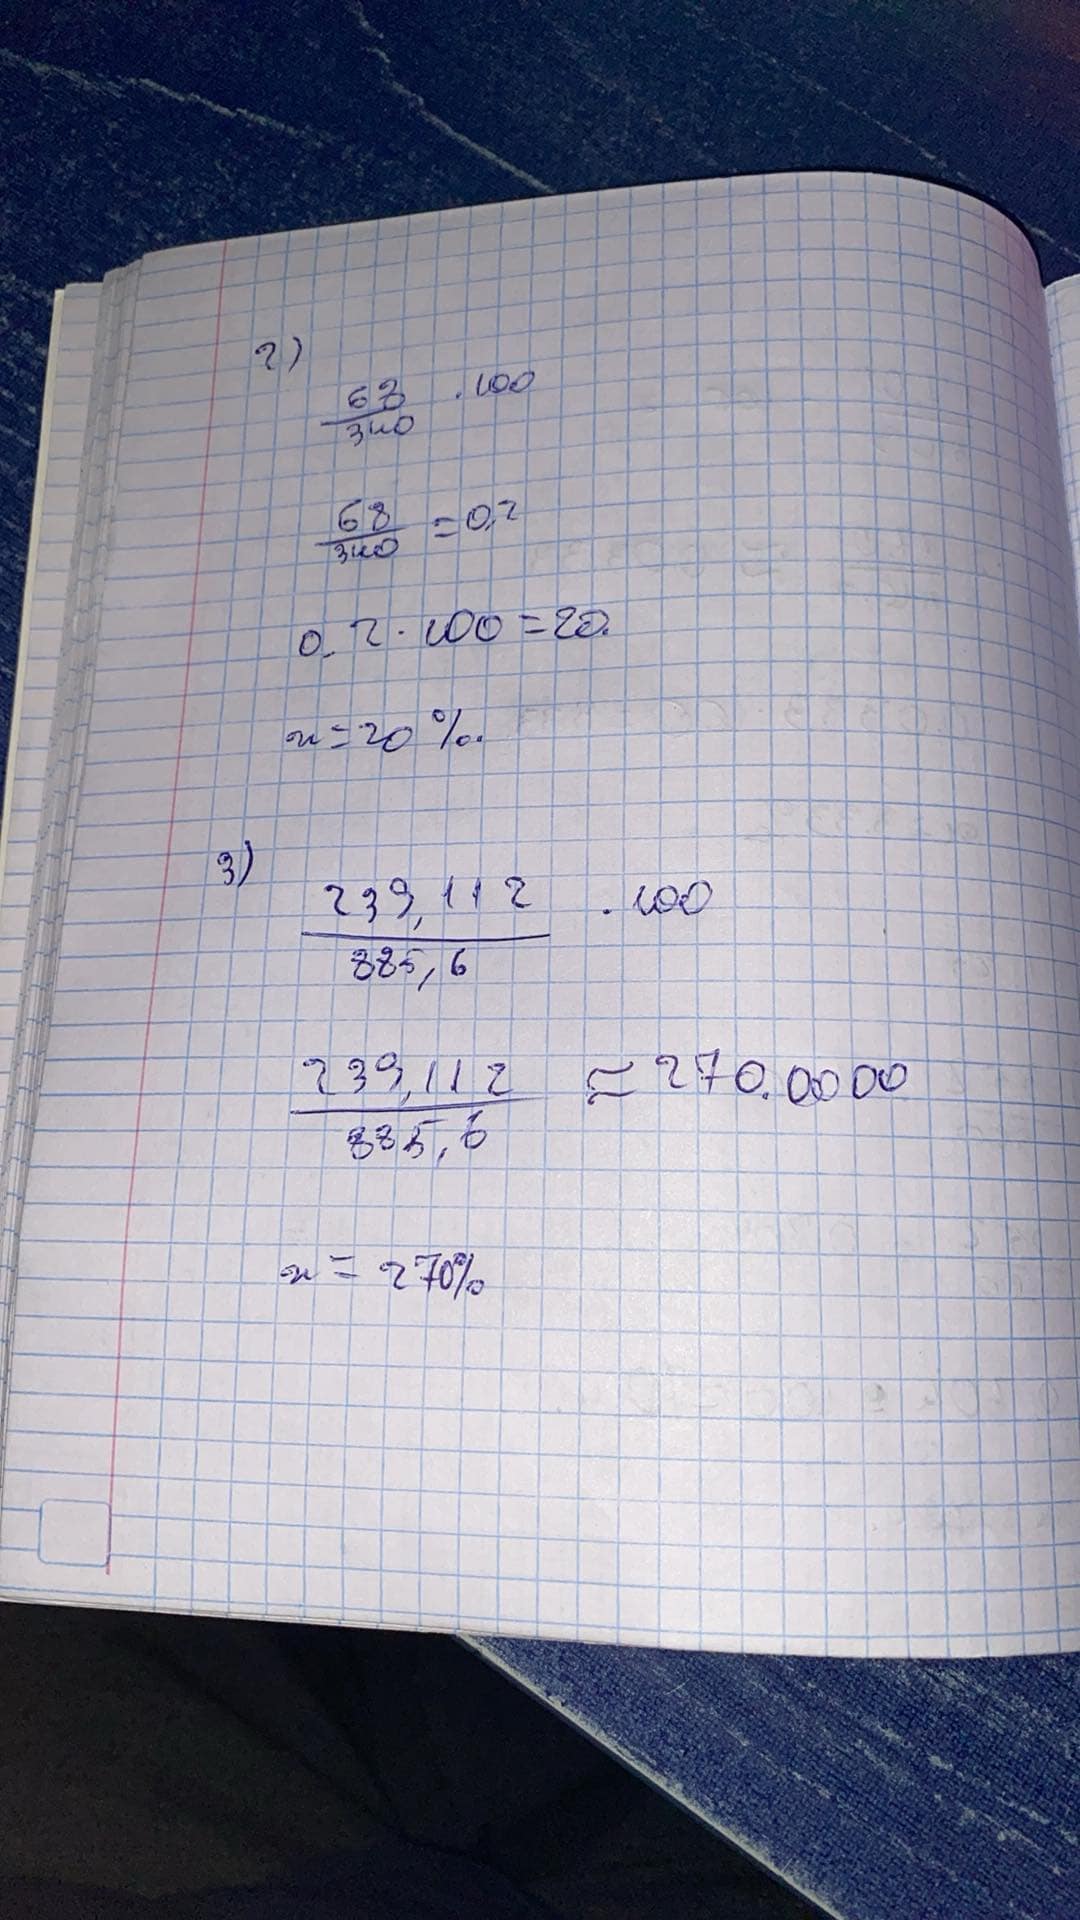 2)
68/340 . 100
68/340 = 0,2
0,2 . 100 = 20.
x = 20 %.
3)
239,112/885,6 . 100
239,112/885,6 ≈ 270.0000
x = 270%